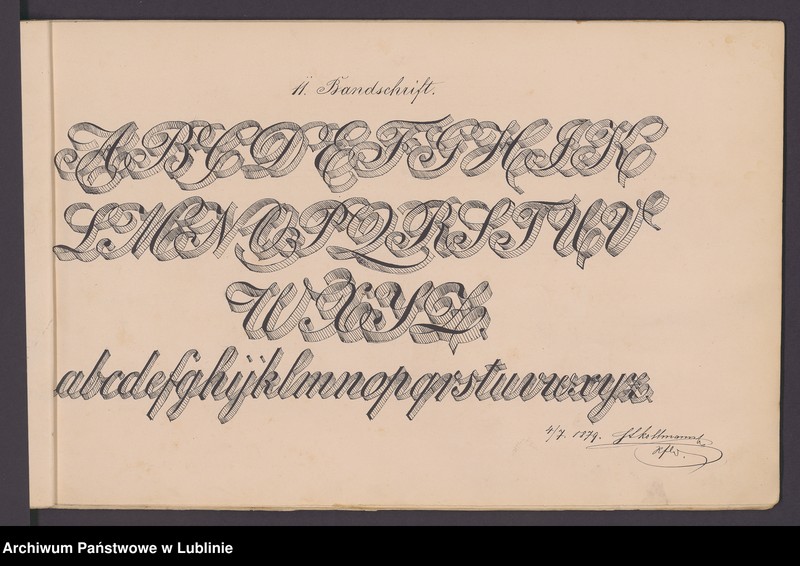 11. Bandschrift.
A B C D E F G H I K
L M N O P Q R S T U V
W X Y Z.
abcdefghijklmnopqrstuvwxyz.
4/7. 1879.
Archiwum Państwowe w Lublinie